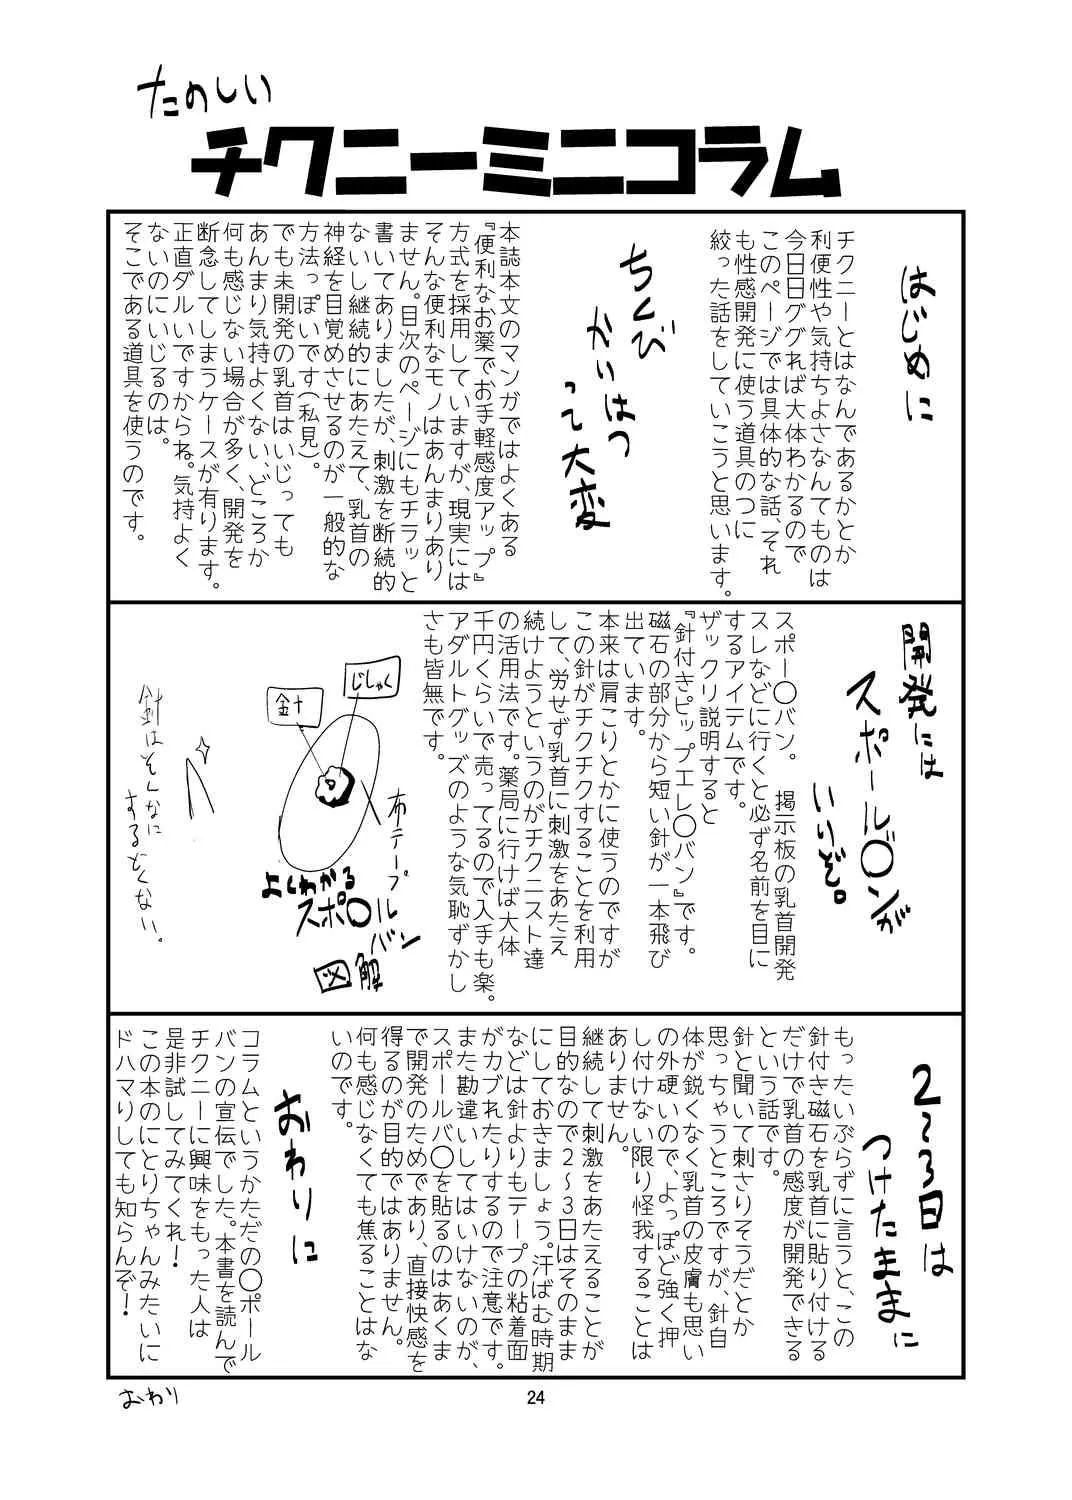 たのしい
チクニーミニコラム
はじめに
チクニーとはなんであるかとか
利便性や気持ちよさなんてものは
今日日ググれば大体わかるので
このページでは具体的な話、それ
も性感開発に使う道具のつに
絞った話をしていこうと思います。
ちくび
かいはつ
って大変
本誌本文のマンガではよくある
『便利なお薬でお手軽感度アップ』
方式を採用していますが、現実には
そんな便利なモノはあんまりあり
ません。目次のページにもチラッと
書いてありましたが、刺激を断続的
ないし継続的にあたえて、乳首の
神経を目覚めさせるのが一般的な
方法っぽいです(私見)。
でも未開発の乳首はいじっても
あんまり気持よくない、どころか
何も感じない場合が多く、開発を
断念してしまうケースが有ります。
正直ダルいですからね。気持よく
ないのにいじるのは。
そこである道具を使うのです。
開発には
スポール〇ンが
いいぞ。
スポー〇バン。　掲示板の乳首開発
スレなどに行くと必ず名前を目に
するアイテムです。
ザックリ説明すると
『針付きピップエレ〇バン』です。
磁石の部分から短い針が一本飛び
出ています。
本来は肩こりとかに使うのですが
この針がチクチクすることを利用
して、労せず乳首に刺激をあたえ
続けようというのがチクニスト達
の活用法です。薬局に行けば大体
千円くらいで売ってるので入手も楽。
アダルトグッズのような気恥ずかし
さも皆無です。
じしゃく
針
布テープ
よくわかる
スポ〇ル
バン
図解
針はそんなに
するどくない。
2~3日は
つけたままに
もったいぶらずに言うと、この
針付き磁石を乳首に貼り付ける
だけで乳首の感度が開発できる
という話です。
針と聞いて刺さりそうだとか
思っちゃうところですが、針自
体が鋭くなく乳首の皮膚も思い
の外硬いので、よっぽど強く押
し付けない限り怪我することは
ありません。
継続して刺激をあたえることが
目的なので2~3日はそのまま
にしておきましょう。汗ばむ時期
などは針よりもテープの粘着面
がカブれたりするので注意です。
また勘違いしてはいけないのが、
スポールバ〇を貼るのはあくま
で開発のためであり、直接快感を
得るのが目的ではありません。
何も感じなくても焦ることはな
いのです。
おわりに
コラムというかただの〇ポール
バンの宣伝でした。本書を読んで
チクニーに興味をもった人は
是非試してみてくれ!
この本のにとりちゃんみたいに
ドハマりしても知らんぞ!
おわり
24